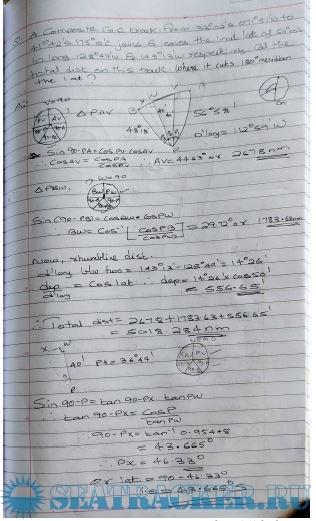 Q. A Composite G.C track from 32°02'S 071°51'0 to
41°42'S 175°01'E joins & leaves the limit lat of 50°00S
in long 128°47'W & 143°13'W respectively. Cal the
total dist on this track where it cuts 180° meridian
the lat?
V=90
Δ PAV
56°58'
D'long = 12°59'W
48°18'
Sin 90-PA = Cos PV. Cos AV
∴ Cos AV = Cos PA / Cos PV
∴ AV = 44.63° or 2678 nm
W=90
Δ PBW,
Sin (90-PB) = Cos BW. Cos PW
BW = Cos⁻¹ [Cos PB / Cos PW] = 29.72° or 1783.63nm
Now, rhumbline dist.
d'long b/w two = 143°13' - 128°47' = 14°26'
dep / d'long = Cos lat ∴ dep = 14°26' x Cos 50°
= 556.65'
∴ Total dist = 2678 + 1783.63 + 556.65'
= 5018.284 nm
V=90
40' P4 = 36°47'
Sin 90-P = tan 90-Px. tan PW
∴ tan 90-Px = Cos P / tan PW
∴ 90-Px = tan⁻¹ 0.9548
= 43.665°
∴ Px = 46.33°
or lat = 90-46.33°
i.e = 43.665°S
SEATRACKER.RU